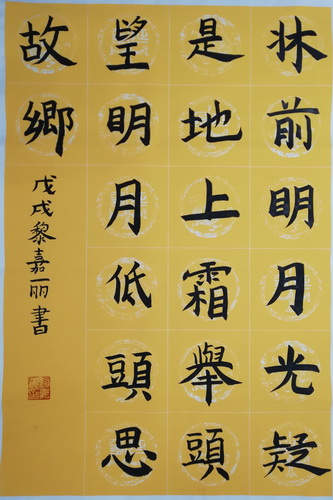 牀前明月光疑
是地上霜舉頭
望明月低頭思
故鄉
戊戌黎嘉丽書